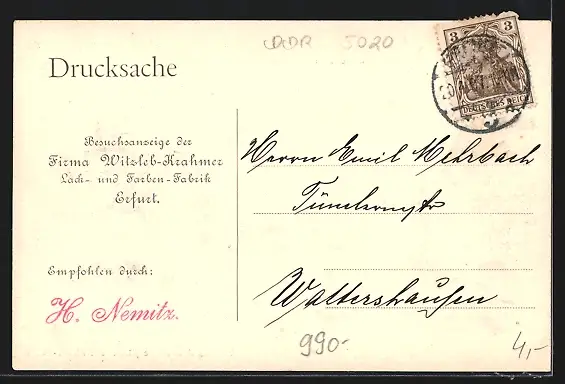 DDR 5020
3 3
DEUTSCHES REICH
Drucksache
Besuchsanzeige der
Firma Witzleb-Krahmer
Lack- und Farben-Fabrik
Erfurt.
Empfohlen durch:
H. Nemitz.
Herrn Emil Mehrbach
Waltershausen
990-
4,-